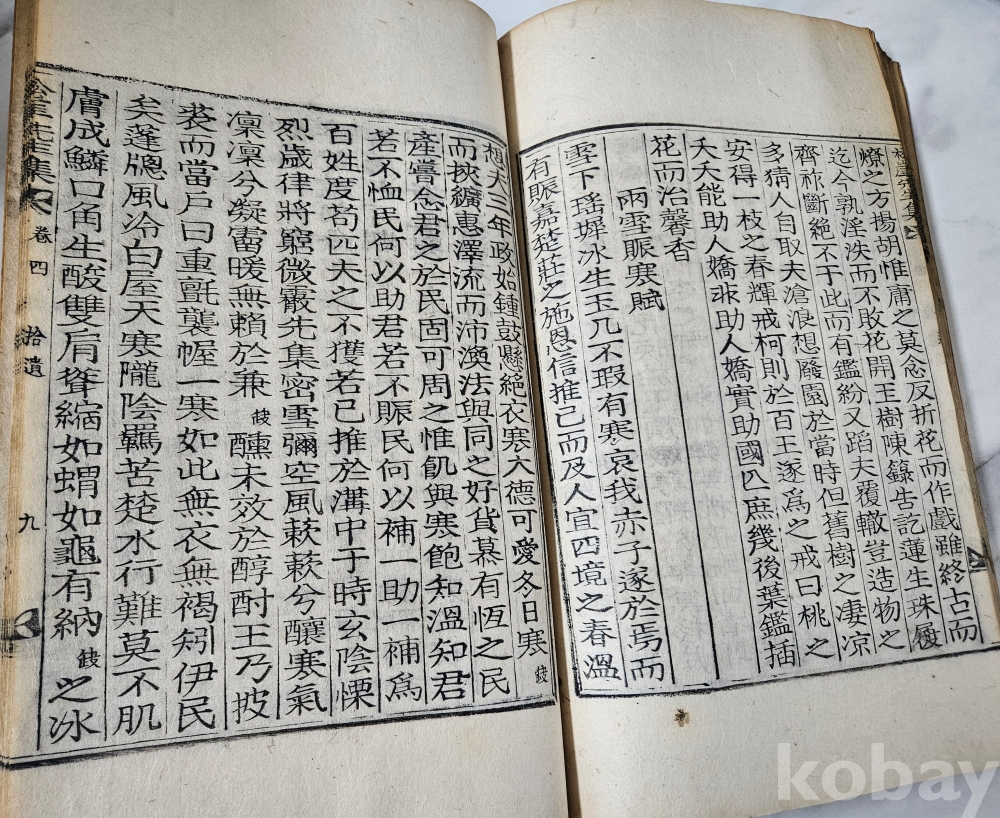 燎之方揚胡惟庸之莫念反折花而作戲雖終古而
迄今孰淫泆而不敗花開王樹陳錄告訖蓮生珠履
齊祚斷絕不于此而有鑑紛又蹈夫覆轍豈造物之
多猜人自取夫滄浪想廢園於當時但舊樹之凄凉
安得一枝之春輝戒柯則於百王遂爲之戒曰桃之
夭夭能助人嬌非助人嬌實助國亡庶幾後葉鑑插
花而治馨香
雨雪賑寒賦
雪下瑤墀冰生玉几不瑕有寒哀我赤子遂於焉而
有賑嘉楚莊之施恩信推己而及人宜四境之春溫
想夫三年政始鍾鼓懸絕衣寒大德可愛冬日寒 缺
而挾纊惠澤流而沛渙法與同之好貨慕有恆之民
產嘗念君之於民固可周之惟飢與寒飽知溫知君
若不恤民何以助君若不賑民何以補一助一補爲
百姓度苟匹夫之不獲若己推於溝中于時玄陰慄
烈歲律將窮微霰先集密雪彌空風蔌蔌兮釀寒氣
凜凜兮凝霤暖無賴於兼 缺 醺未效於醇酎王乃披
裘而當戶曰重氈襲幄一寒如此無衣無褐矧伊民
矣蓬牕風冷白屋天寒隴陰羈苦楚水行難莫不肌
膚成鱗口角生酸雙肩聳縮如蝟如龜有納 缺 之冰
先生集 卷四 拾遺 九